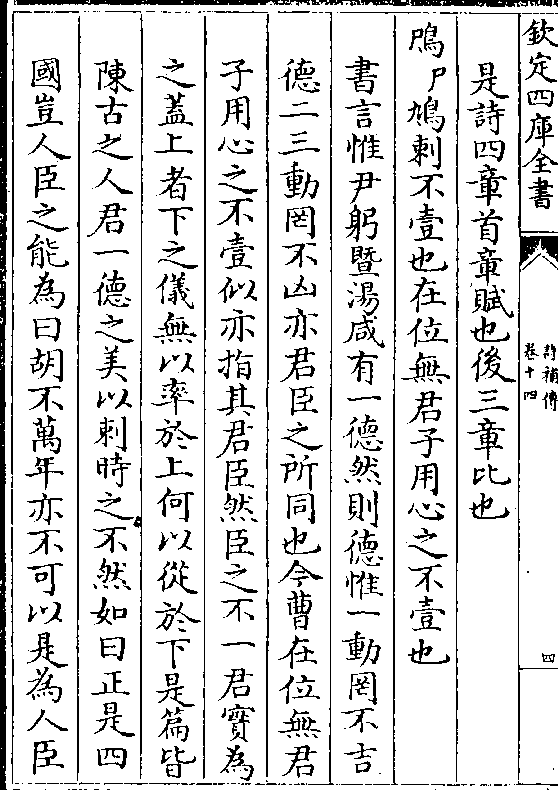 欽定四庫全書
詩補傳
卷十四
四
是詩四章首章賦也後三章比也
鳲鳩刺不壹也在位無君子用心之不壹也
書言惟尹躬暨湯咸有一德然則德惟一動罔不吉
德二三動罔不凶亦君臣之所同也今曹在位無君
子用心之不壹似亦指其君臣然臣之不一君實為
之蓋上者下之儀無以率於上何以從於下是篇皆
陳古之人君一德之美以刺時之不然如曰正是四
國豈人臣之能為曰胡不萬年亦不可以是為人臣